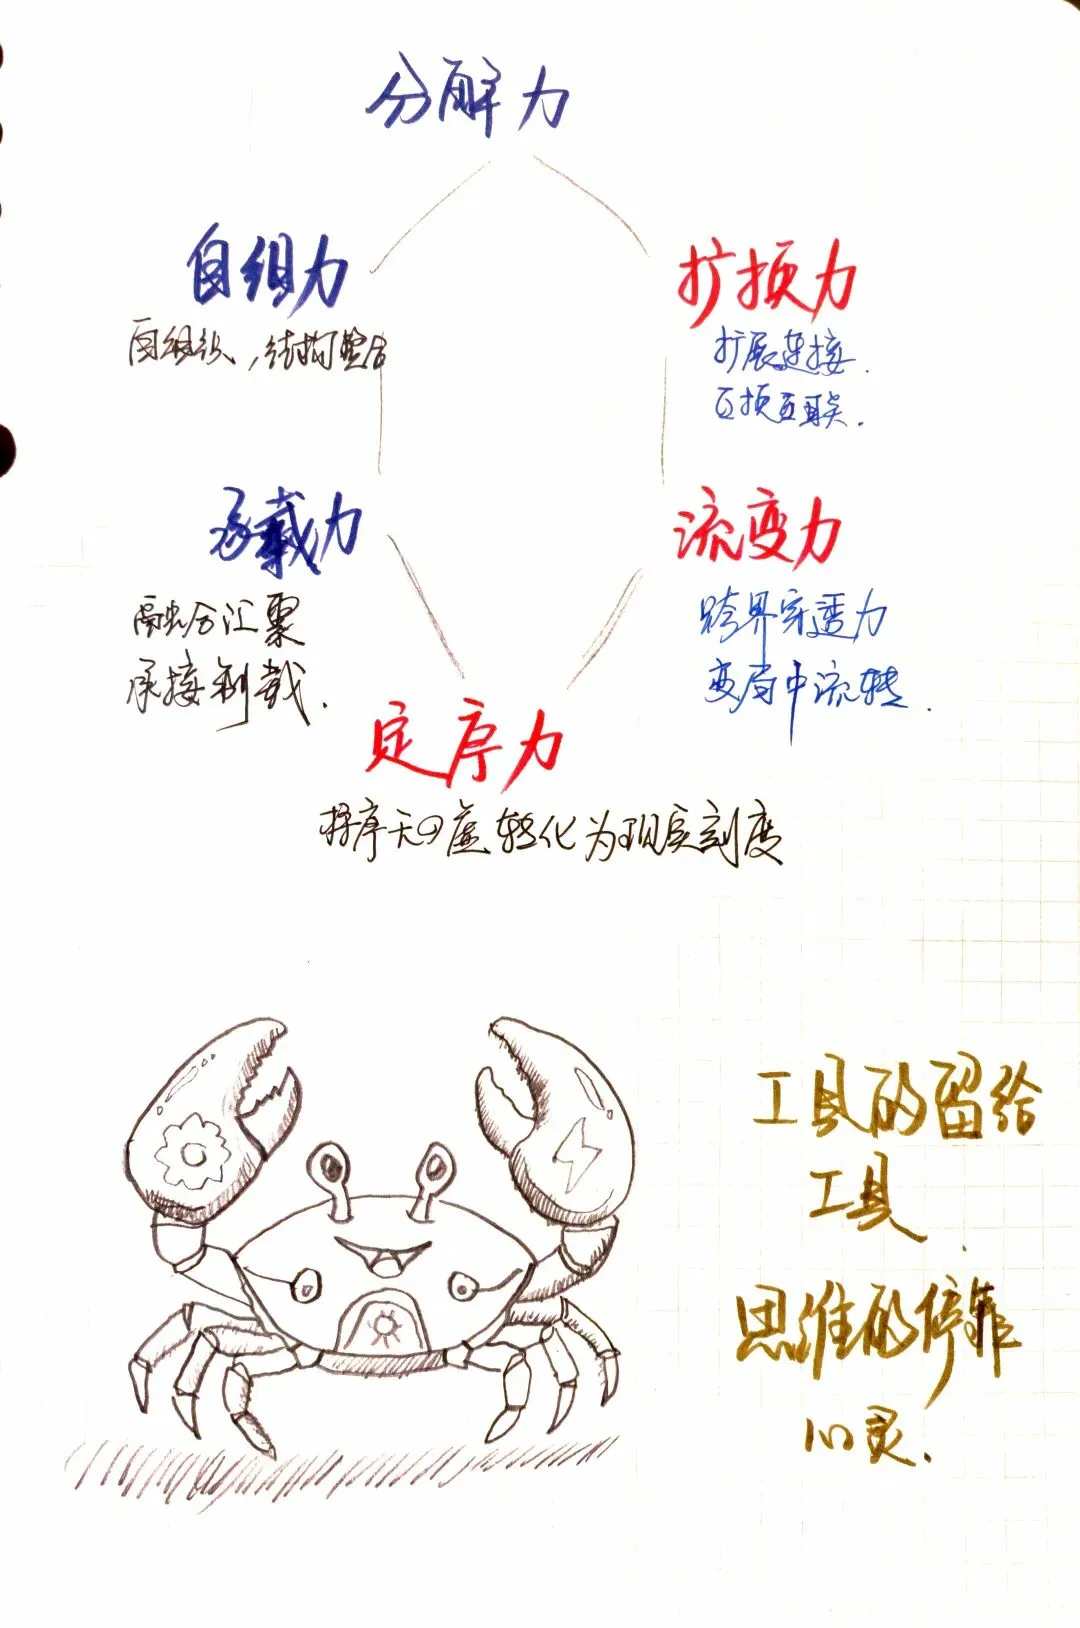 分解力
自组力
自组织，结构整合
扩 力
扩展连接.
互联.
承载力
融合汇聚
承接
流变力
跨界穿透力
变局中流转.
定序力
序 虚转化为现实刻度
工具的留给
工具.
思维的停靠
心灵.